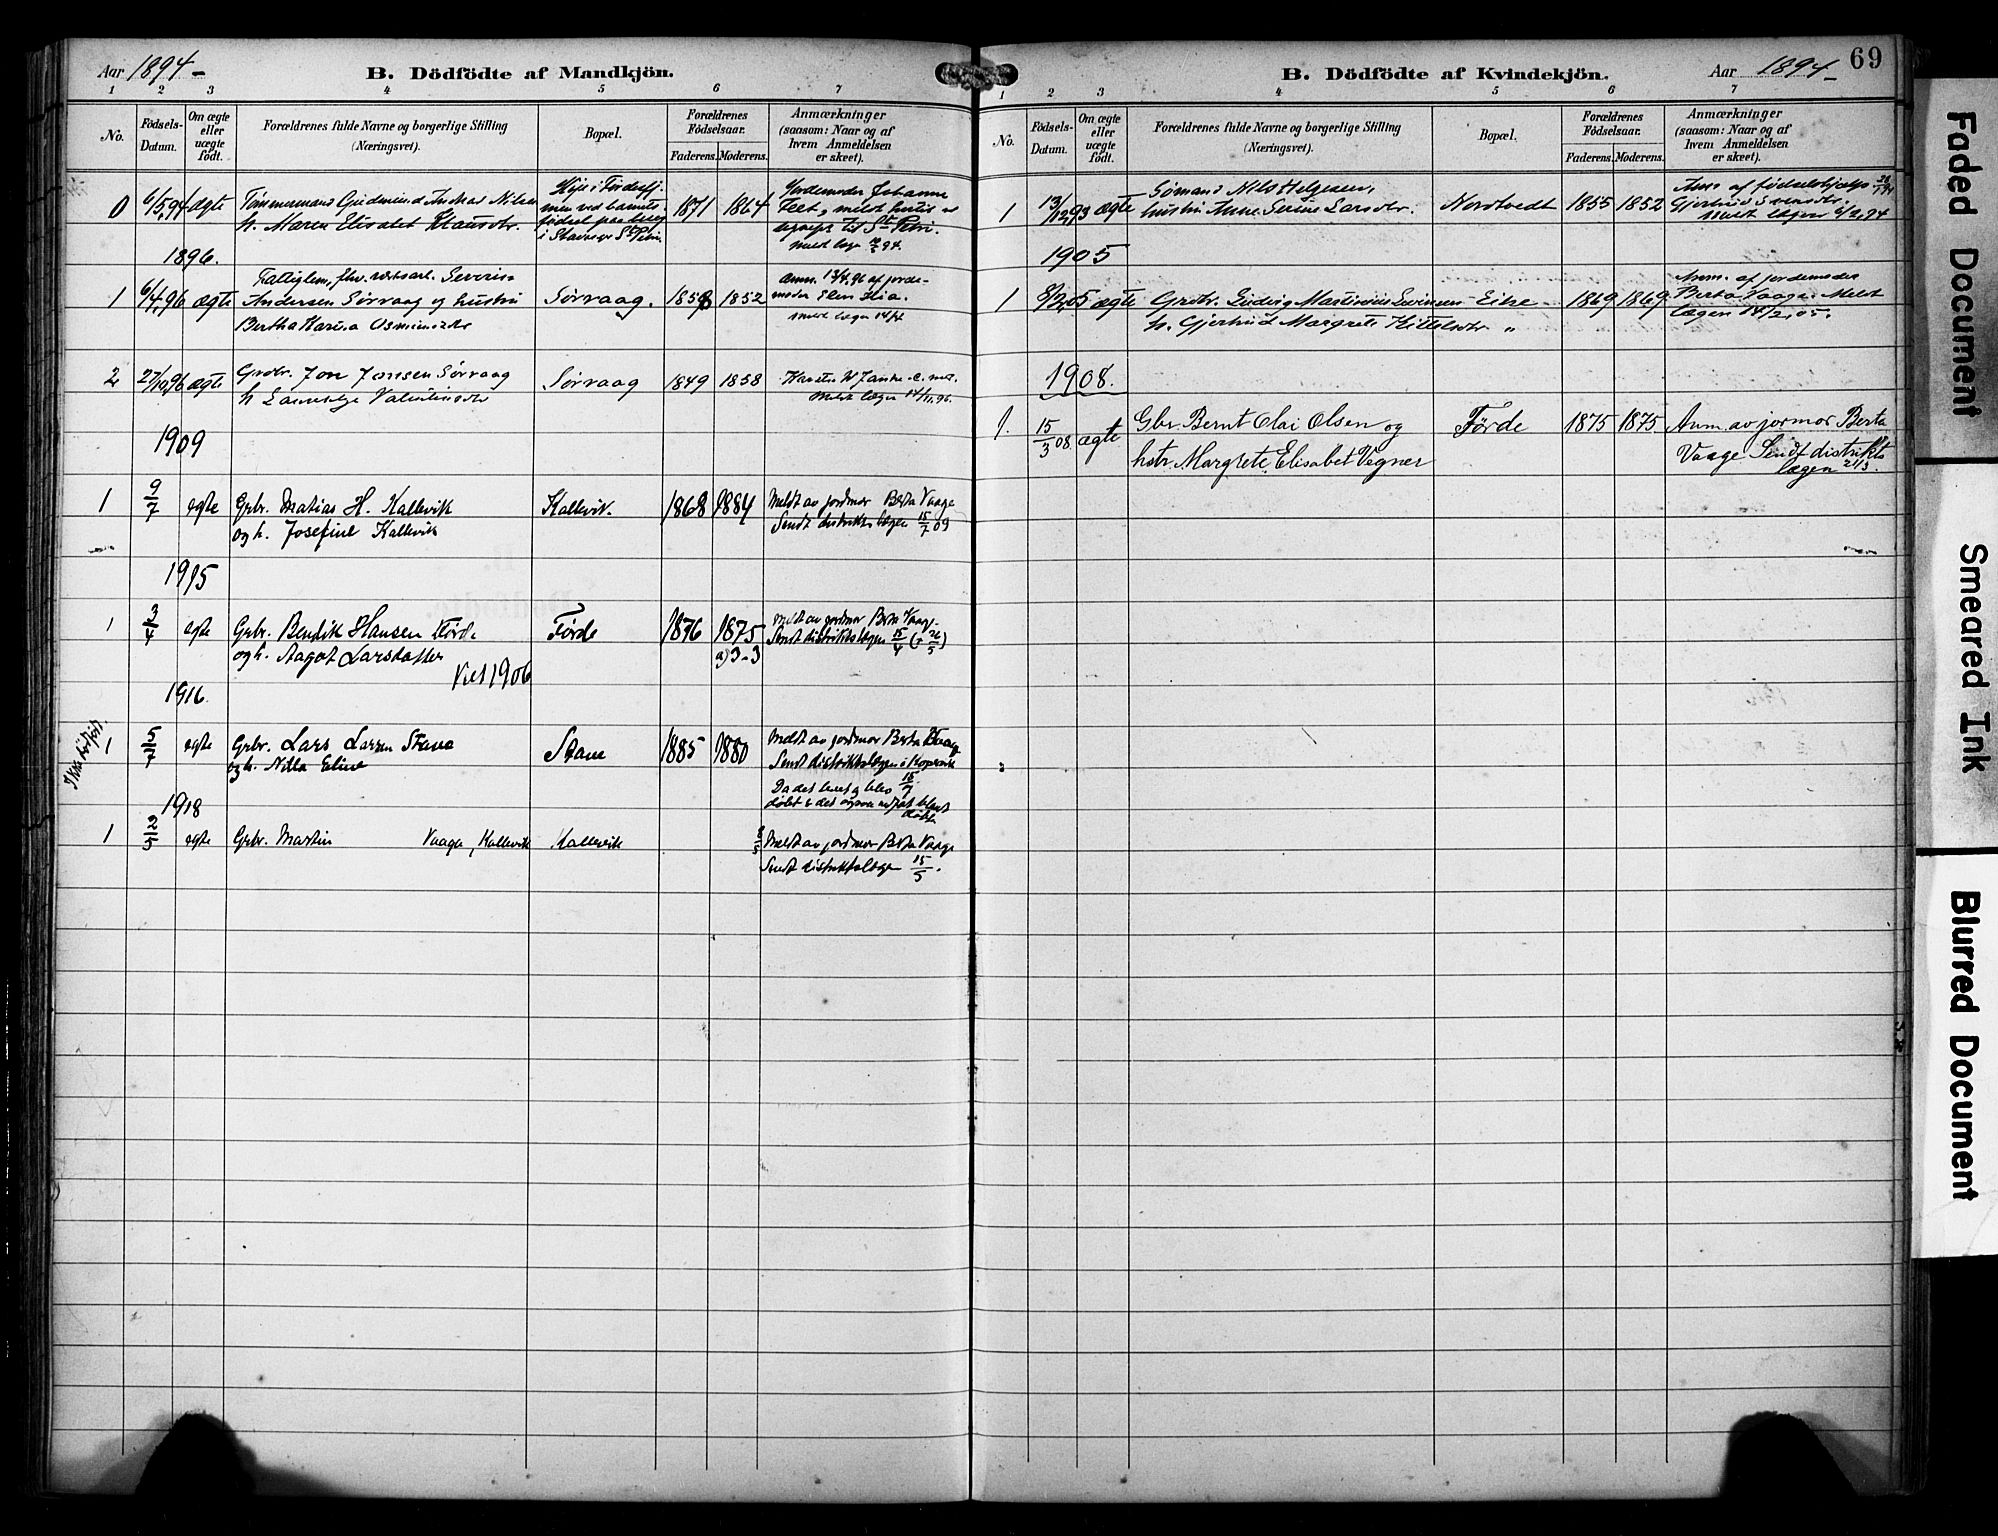 Aar 1894 -
B. Dödfödte af Mandkjön.
1 2 3 4 5 6 7
No.
Födsels-Datum.
Om ægte eller uægte födt.
Forældrenes fulde Navne og borgerlige Stilling (Næringsvei).
Bopæl.
Forældrenes Födselsaar.
Faderens. Moderens.
Anmærkninger (saasom: Naar og af hvem Anmeldelsen er skeet).
0 6/5,94 ægte Tømmermand Gudmund Andreas Nilsen
h. Maren Elisabet Klausdtr.
i Stavanger St Petri
1871 1864
Jordemoder Johanne
meldt
til St Petri.
1896.
1 6/4,96 ægte Fattiglem, Severin
Andersen Sørvaag og hustru
Bertha Karina Osmundsdtr
Sørvaag. 1858 1852
anm. 13/4,96 af jorde-
moder Elen Lia.
meldt lægen 14/4
2 27/10,96 ægte Grdbr. Jon Jonsen Sørvaag
h Valentinsdtr
Sørvaag 1849 1858
meldt lægen 14/11,96.
1909
1 9/7 egte Grbr. Matias H. Kallevik
og h. Josefine Kallevik
Kallevik. 1868 1884
Meldt av jordmor Berta Vaage
Sendt distriktslægen 15/7 09
1915
1 3/4 egte Grbr. Bendik Hansen Førde
og h. Aagot Larsdatter
Viet 1906
Førde 1876 1875
a) 3 - 3
Meldt av jordmor Berta Vaage.
Sendt distriktslægen 15/4 ( 26/5)
1916
1 5/7 egte Grbr. Lars Larsen Stave
og h. Nilla Eline
Stave 1885 1880
Meldt av jordmor Berta Vaage
Sendt distriktslægen i Kopervik 15/7
Da det levet og blev
døbt
1918
1 2/5 egte Grbr. Martin Vaage, Kallevik Kallevik
8/5 Meldt av jordmor Berta Vaage
Sendt distriktslægen 15/5.
B. Dödfödte af Kvindekjön.
Aar 1894 -
69
1 2 3 4 5 6 7
No.
Födsels-Datum.
Om ægte eller uægte födt.
Forældrenes fulde Navne og borgerlige Stilling (Næringsvei).
Bopæl.
Forældrenes Födselsaar.
Faderens. Moderens.
Anmærkninger (saasom: Naar og af hvem Anmeldelsen er skeet).
1 13/12,93 ægte Sømand Nils Helgesen,
hustru Anne Serine Larsdtr.
Nordtvedt 1855 1852
Anm. af fødselshjælp
Gjertrud Svensdtr.
meldt lægen 6/2,94
1905
1 8/2,05 ægte Grdbr. Ludvig Martinius Sivertsen
h. Gjertrud Margrete Kittelsdtr
Eike " 1869 1869
Anm. af jordemoder
Berta Vaage. Meldt
lægen 14/2,05.
1908.
1. 15/3 08 ægte Gbr. Bernt Olai Olsen og
hstr. Margrete Elisabet Vegner
Förde 1875 1875
Anm. av jormor Berta
Vaage Sendt distrikts
lægen 21/3.
Faded Document
Smeared Ink
Blurred Document